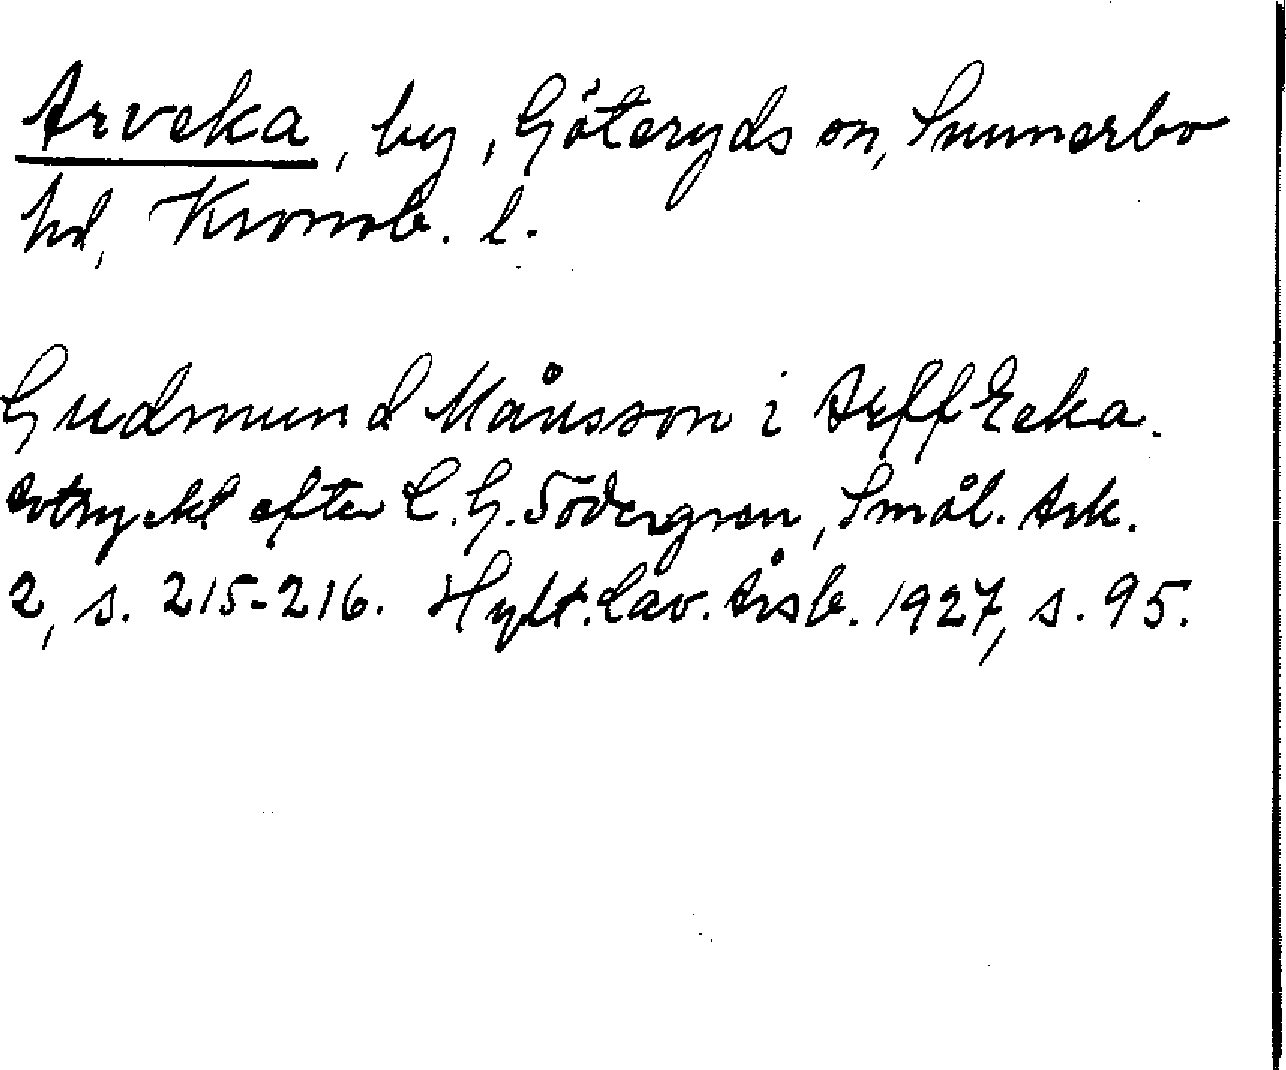 Arveka, by, Göteryds sn, Sunnerbo
hd, Kronob. l.
Gudmund Månsson i ArffEcka.
Avtryckt efter L. G. Södergren, Smål. Ark.
2, s. 215-216. Hylt. Cav. Årsb. 1927, s. 95.